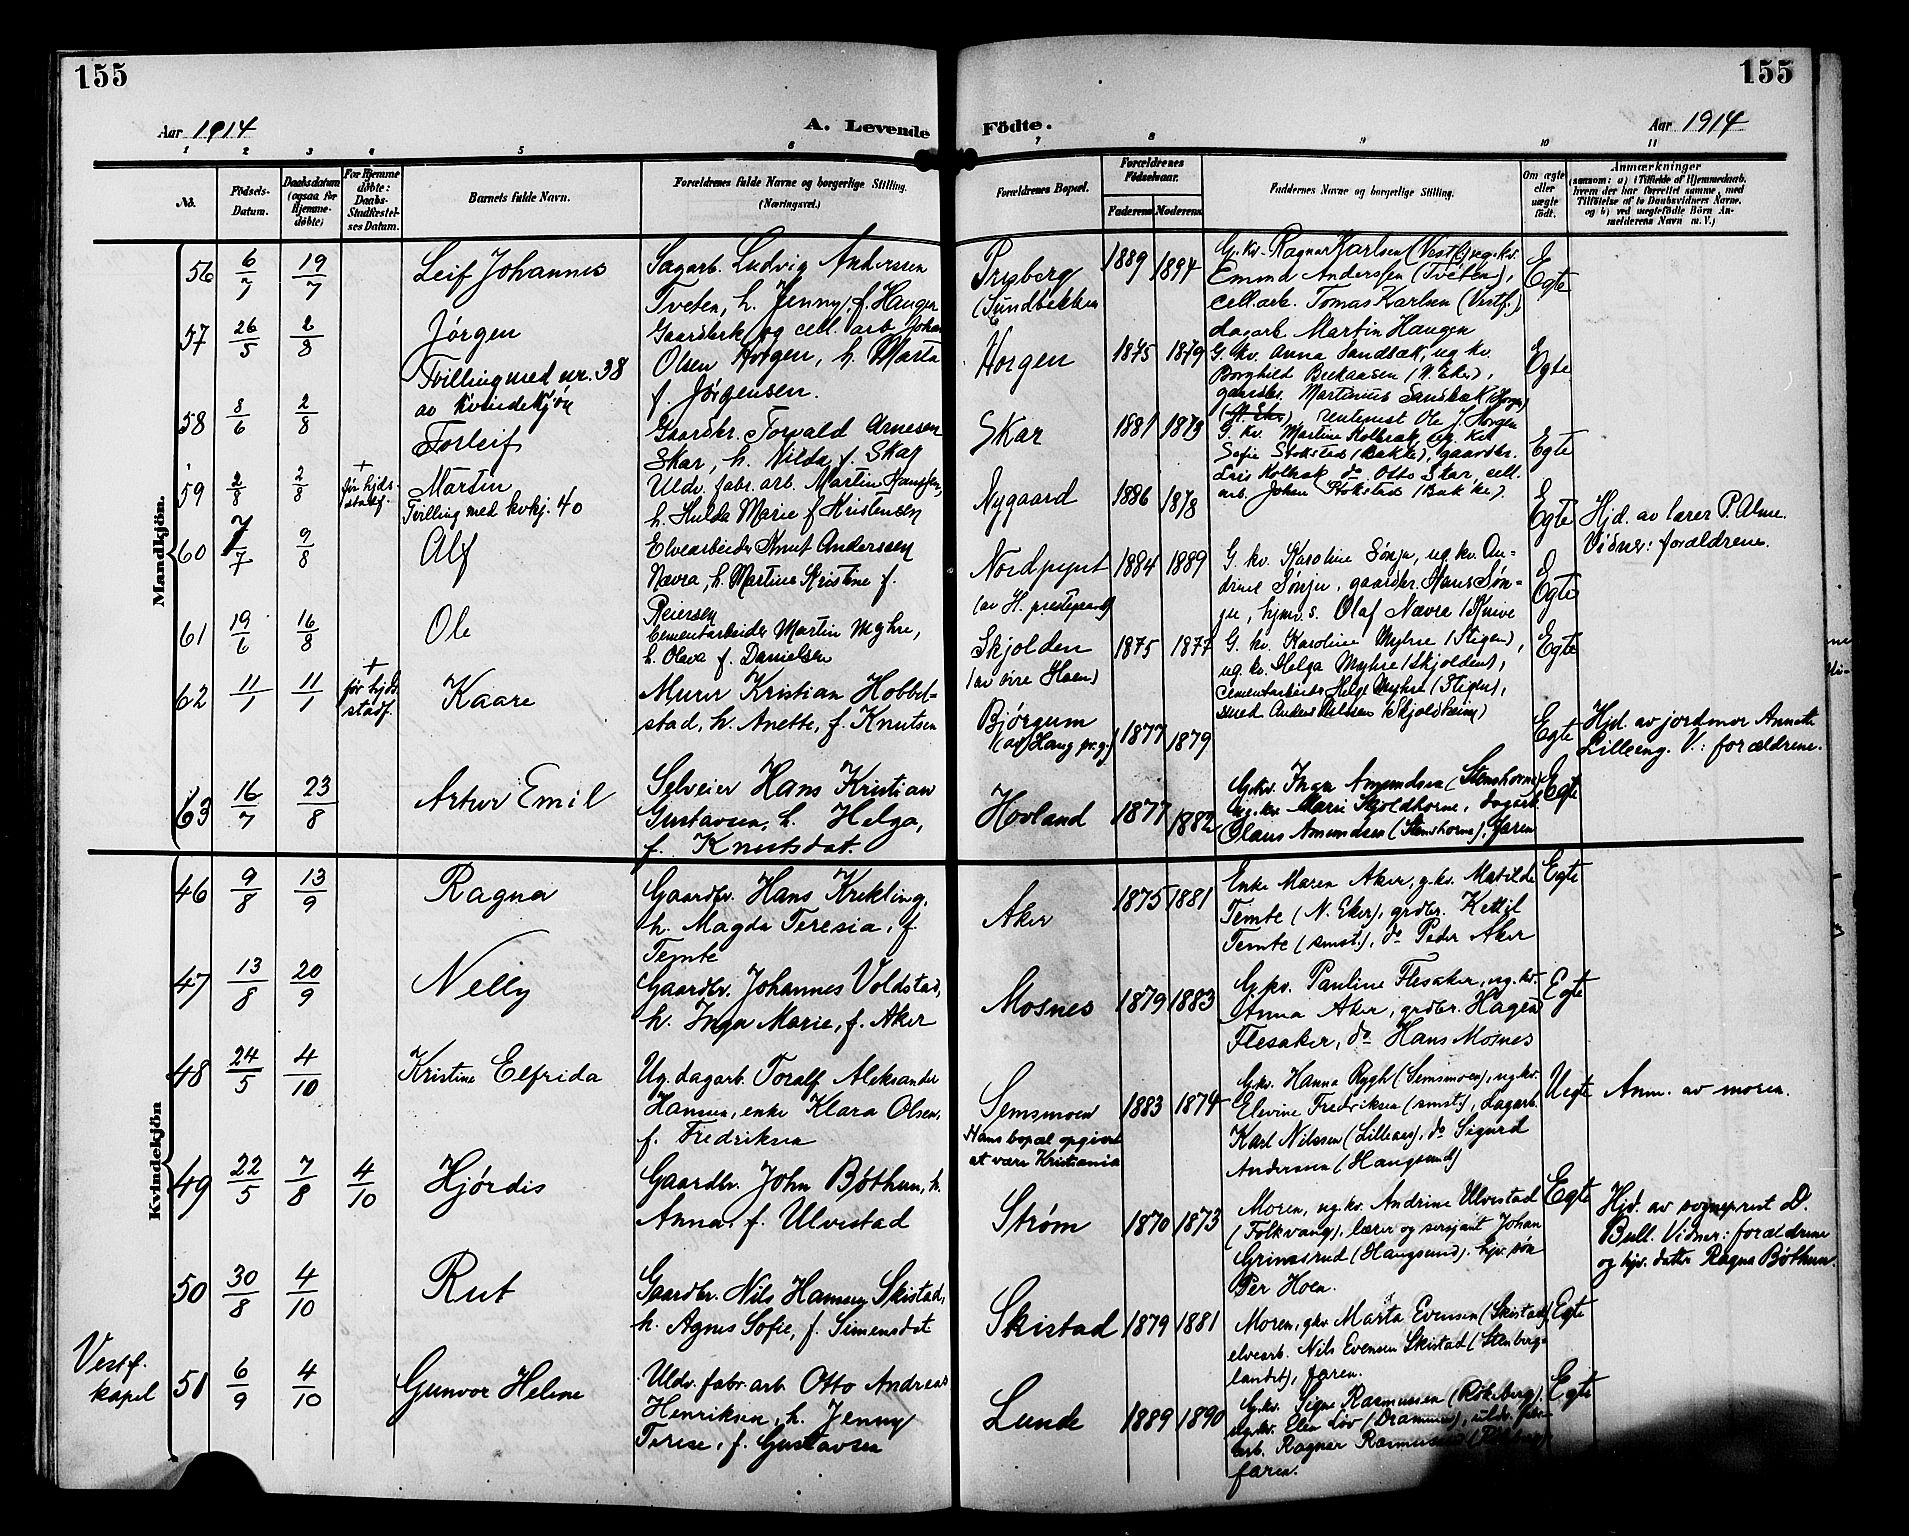 155
155
Aar 1914
A. Levende
Födte.
Aar 1914
1 2 3 4 5 6 7 8 9 10 11
No.
Födsels-
Datum.
Daabsdatum
(ogsaa for
Hjemme-
döbte)
For Hjemme
döbte:
Daabs-
Stadfæstel-
ses Datum.
Barnets fulde Navn.
Forældrenes fulde Navne og borgerlige Stilling.
(Næringsvei.)
Forældrenes Bopæl.
Forældrenes
Födselsaar.
Faderens
Moderens
Faddernes Navne og borgerlige Stilling.
Om ægte
eller
uægte
födt.
Anmærkninger
(saasom: a) i Tilfælde af Hjemmedaab,
hvem der har forrettet samme, med
Tilföielse af to Daabsvidners Navne,
og b) ved uægtefödte Börn An-
melderens Navn m. V.)
Mandkjön.
56 6/7 19/7 Leif Johannes
Sagarb. Ludvig Anderssen
Tveten, h. Jenny, f. Haugen
(Sundbekken
1889 1894
G. kv. Ragna Karlsen (Vestf.) ug. kv.
Emma Anderssen (Tveten),
cell.arb. Tomas Karlsen (Vestf.),
dagarb. Martin Haugen
Egte
57 26/5 2/8 Jørgen
Tvilling med nr. 38
av kvindekjøn
Gaardbrk og cell. arb Johan
Olsen Horgen, h. Marta
f. Jørgensen.
Horgen 1875 1879
G. kv. Anna Sandbak, ug kv.
Borghild Bekaasen (N. Eker),
gaardbr. Martinus Sandbak (Horgen)
rentenist Ole J. Horgen
Egte
58 8/6 2/8 Torleif
Gaardbr. Torvald Arnesen
Skar, h. Hilda, f. Skar
Skar 1881 1873
G. kv. Martine Kolbrak, ug. kv.
Sofie Stokstad (Bakke), gaardbr.
Lars Kolbrak do Otto Skar, cell.
arb. Johan Stokstad (Bakke).
Egte
59 2/8 2/8 + før hjds.
stadf.
Martin
Tvilling med kvkj. 40
Uldv. fabr. arb. Martin Hanssen,
h. Hulda Marie f Kristensen
Nygaard 1886 1878
Egte
Hjd. av lærer P Alme.
Vidner: forældrene.
60 7/7 9/8 Alf
Elvearbeider Knut Anderssen
Nævra, h. Martine Kristine f.
Reiersen
Nordpynt
(av H. prestegaard)
1884 1889
G. kv. Karoline Sønju, ug kv. An-
drine Sønju, gaardbr Hans Søn-
ju, hjmv. s. Olaf Nævra (Kneive
Egte
61 19/6 16/8 Ole
Cementarbeider Martin Myhre,
h. Olava f. Danielsen
Skjolden
(av øvre Hoen)
1875 1877
G. kv. Karoline Myhre (Stigen),
ug. kv. Helga Myhre (Skjolden),
Cementarbeider Helge Myhre (Stigen),
smed Anders Nilsen (Skjoldheim)
Egte
62 11/1 11/1 + før hjds.
stadf.
Kaare
Murer Kristian Hobbel-
stad, h. Anette, f. Knutsen
Bjørgum
(av Haug pr.g.)
1877 1879
Egte
Hjd. av jordmor Annette
Lilleeng. V: forældrene.
63 16/7 23/8 Artur Emil
Selveier Hans Kristian
Gustavsen, h. Helga,
f. Knutsdat.
Hovland 1877 1882
G. kv. Inga Amundsen (Stenshorne)
ug. kv. Marie Skjoldhorne, dagarb
Olaus Amundsen (Stenshorne), faren
Egte
Kvindekjön
46 9/8 13/9 Ragna
Gaardbr. Hans Krekling,
h. Magda Teresia, f.
Temte
Aker 1875 1881
Enke Maren Aker, g. kv. Matilde
Temte (N. Eker), grdbr. Kettil
Temte (smst.), do Peder Aker
Egte
47 13/8 20/9 Nelly
Gaardbr. Johannes Voldstad,
h. Inga Marie, f. Aker
Mosnes 1879 1883
G. kv. Pauline Flesaker, ug. kv.
Anna Aker, grdbr. Hagen
Flesaker, do Hans Mosnes
Egte
48 24/5 4/10 Kristine Elfrida
Ug. dagarb. Toralf Aleksander
Hansen, enke Klara Olsen,
f. Fredriksen
Semsmoen
Hans bopæl opgivet
at være Kristiania
1883 1874
G. kv. Hanna Rygh (Semsmoen), ug. kv.
Elvine Fredriksen (smst.), dagarb.
Karl Nilssen (Lilleaas), do Sigurd
Andersen (Haugsund)
Uegte
Anm. av moren.
49 22/5 7/8 4/10 Hjørdis
Gaardbr. John Bøthun, h.
Anna, f. Ulvestad
Strøm 1870 1873
Moren, ug. kv. Andrine Ulvestad
(Folkvang), lærer og sersjant Johan
Grimsrud (Haugsund), hjv. søn
Per Hoen.
Egte
Hjd. av sogneprest D.
Bull. Vidner: forældrene
og hjv. datter Ragna Bøthun.
50 30/8 4/10 Rut
Gaardbr. Nils Hansen Skistad,
h. Agnes Sofie, f. Simensdat
Skistad 1879 1881
Moren, gkv Marta Evensen (Skistad)
elvearb. Nils Evensen Skistad (Stenberg-
landet), faren.
Egte
Vestf.
kapel
51 6/9 4/10 Gunvor Helene
Uldv. fabr. arb. Otto Andreas
Henriksen, h. Jenny
Terese, f. Gustavsen
Lunde 1889 1890
G. kv. Signe Rasmussen (Røkeberg)
ug. kv. Elen Løv (Drammen), uldv. fabr.
arb. Ragnar Rasmussen
faren.
Egte